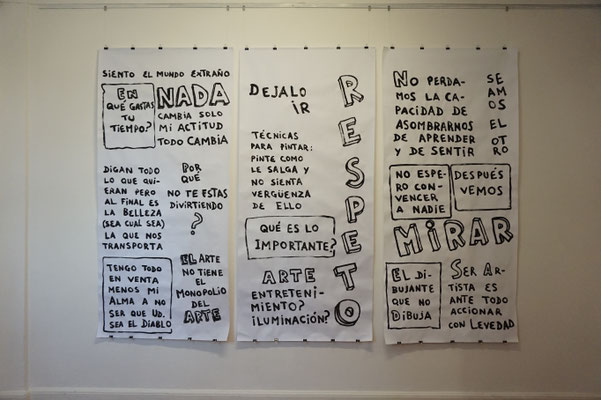 SIENTO EL MUNDO EXTRAÑO
EN
QUÉ GASTAS
TU
TIEMPO?
NADA
CAMBIA SOLO
MI ACTITUD
TODO CAMBIA
DIGAN TODO
LO QUE QUI-
ERAN PERO
AL FINAL ES
LA BELLEZA
(SEA CUAL SEA)
LA QUE NOS
TRANSPORTA
POR
QUÉ
NO TE ESTAS
DIVIRTIENDO
?
TENGO TODO
EN VENTA
MENOS MI
ALMA A NO
SER QUE UD.
SEA EL DIABLO
EL ARTE
NO TIENE
EL
MONOPOLIO
DEL
ARTE
DEJALO
IR
RESPETO
TÉCNICAS
PARA PINTAR:
PINTE COMO
LE SALGA Y
NO SIENTA
VERGÜENZA
DE ELLO
QUÉ ES LO
IMPORTANTE?
ARTE
ENTRETENI-
MIENTO?
ILUMINACIÓN?
NO PERDA-
MOS LA CA-
PACIDAD DE
ASOMBRARNOS
DE APRENDER
Y DE SENTIR
SEAMOS EL OTRO
NO ESPE-
RO CON-
VENCER
A NADIE
DESPUÉS
VEMOS
MIRAR
EL DI-
BUJANTE
QUE NO
DIBUJA
SER AR-
TISTA ES
ANTE TODO
ACCIONAR
CON LEVEDAD